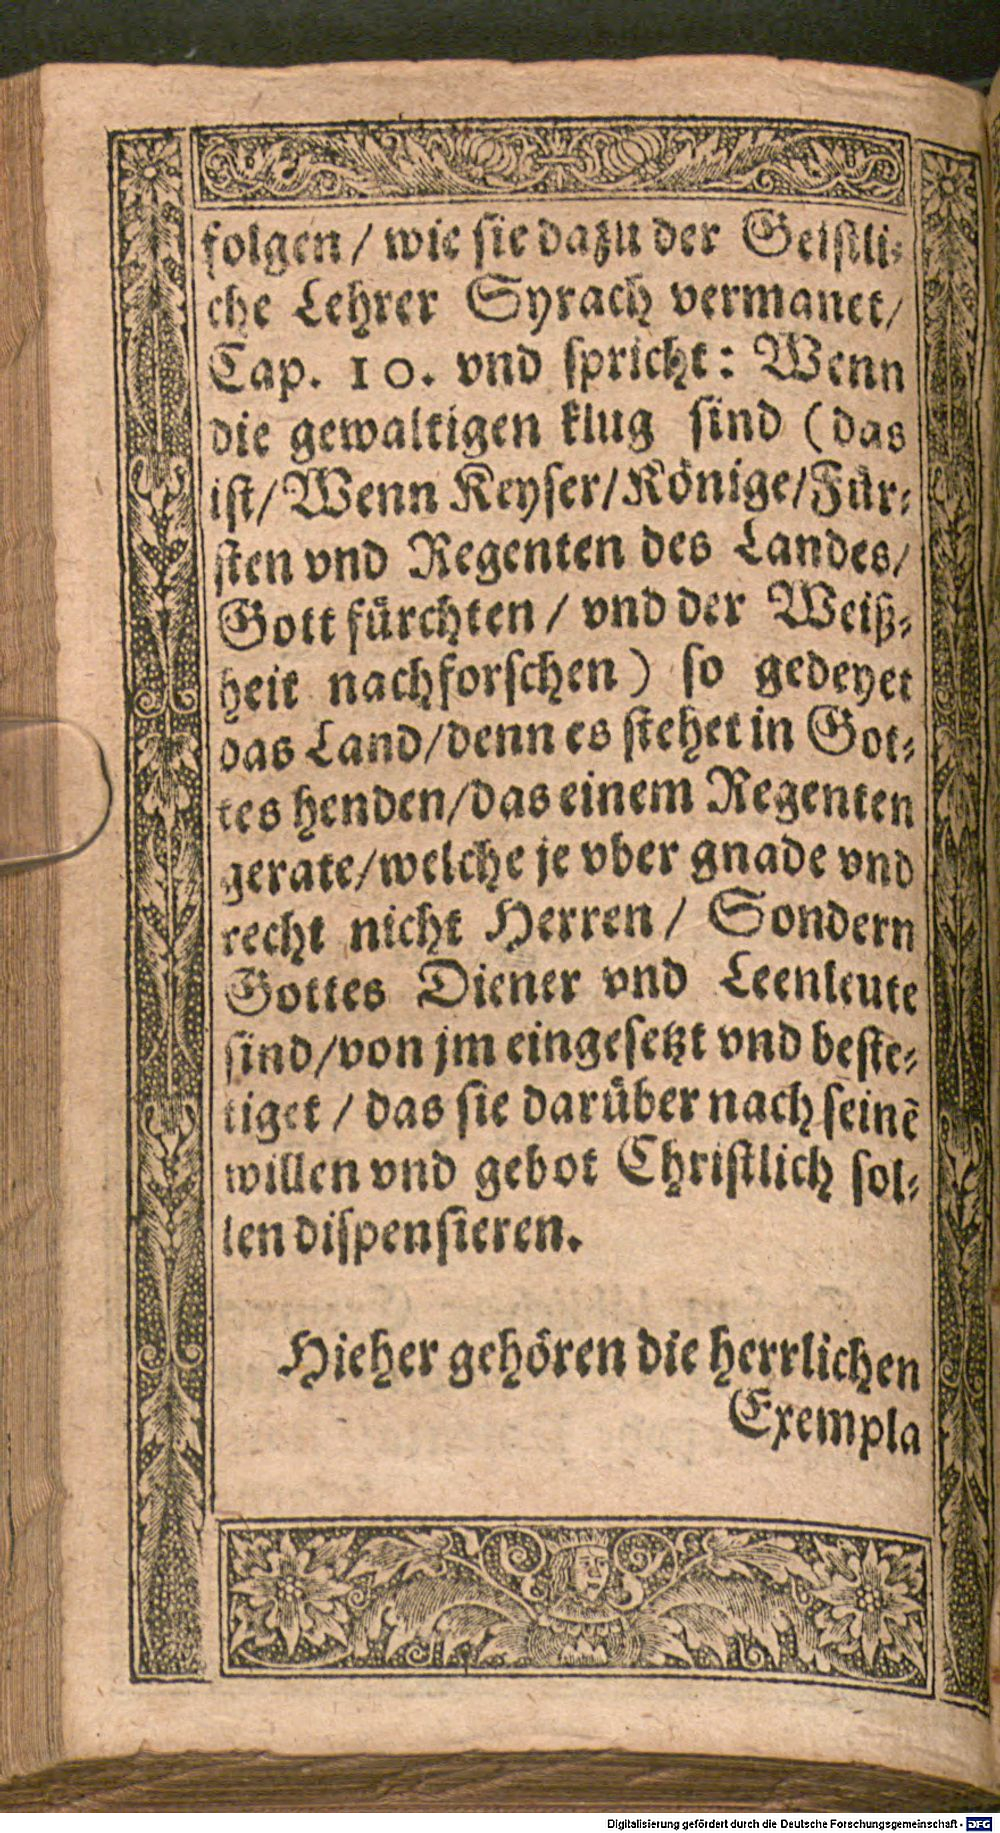 folgen / wie sie dazu der Geistli-
che Lehrer Syrach vermanet /
Cap. 10. vnd spricht: Wenn
die gewaltigen klug sind (das
ist / Wenn Keyser / Könige / Für-
sten vnd Regenten des Landes /
Gott fürchten / vnd der Weiß-
heit nachforschen) so gedeyet
das Land / denn es stehet in Got-
tes henden / das einem Regenten
gerate / welche je vber gnade vnd
recht nicht Herren / Sondern
Gottes Diener vnd Leenleute
sind / von jm eingesetzt vnd beste-
tiget / das sie darüber nach seinē
willen vnd gebot Christlich sol-
len dispensieren.
Hieher gehören die herrlichen
Exempla
Digitalisierung gefördert durch die Deutsche Forschungsgemeinschaft - DFG